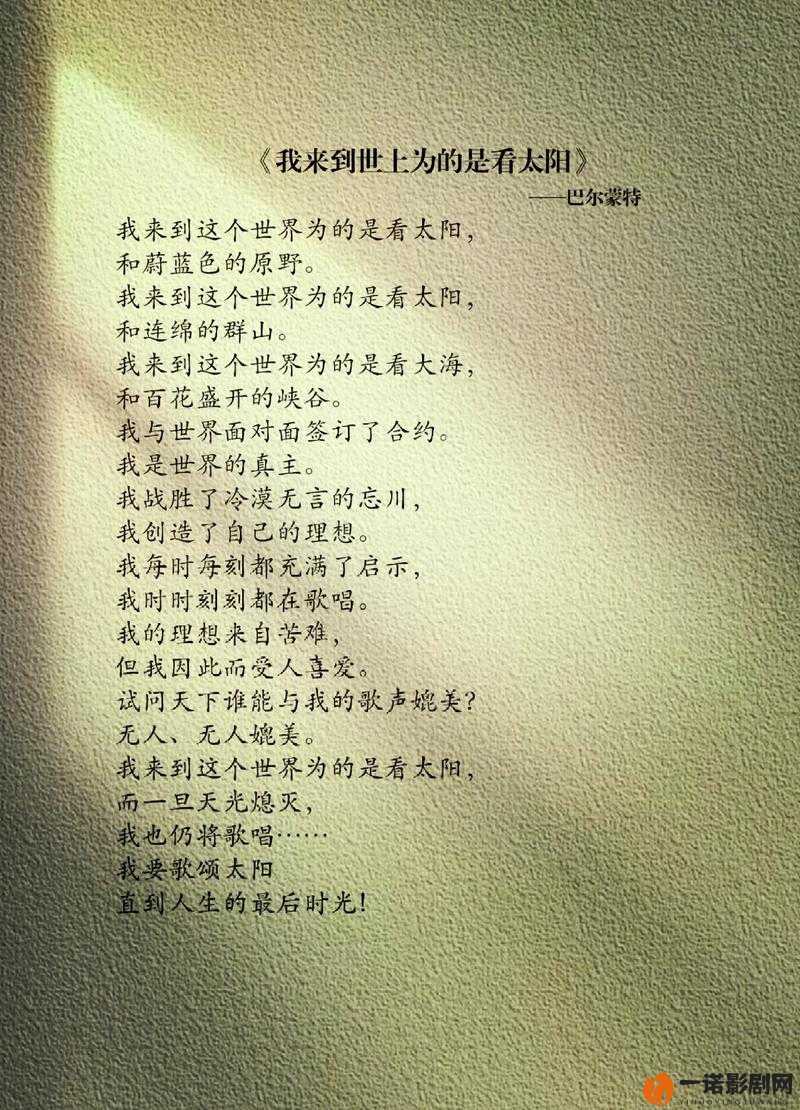 《我来到世上为的是看太阳》
——巴尔蒙特
我来到这个世界为的是看太阳，
和蔚蓝色的原野。
我来到这个世界为的是看太阳，
和连绵的群山。
我来到这个世界为的是看大海，
和百花盛开的峡谷。
我与世界面对面签订了合约。
我是世界的真主。
我战胜了冷漠无言的忘川，
我创造了自己的理想。
我每时每刻都充满了启示，
我时时刻刻都在歌唱。
我的理想来自苦难，
但我因此而受人喜爱。
试问天下谁能与我的歌声媲美？
无人、无人媲美。
我来到这个世界为的是看太阳，
而一旦天光熄灭，
我也仍将歌唱……
我要歌颂太阳
直到人生的最后时光！
一诺影剧网